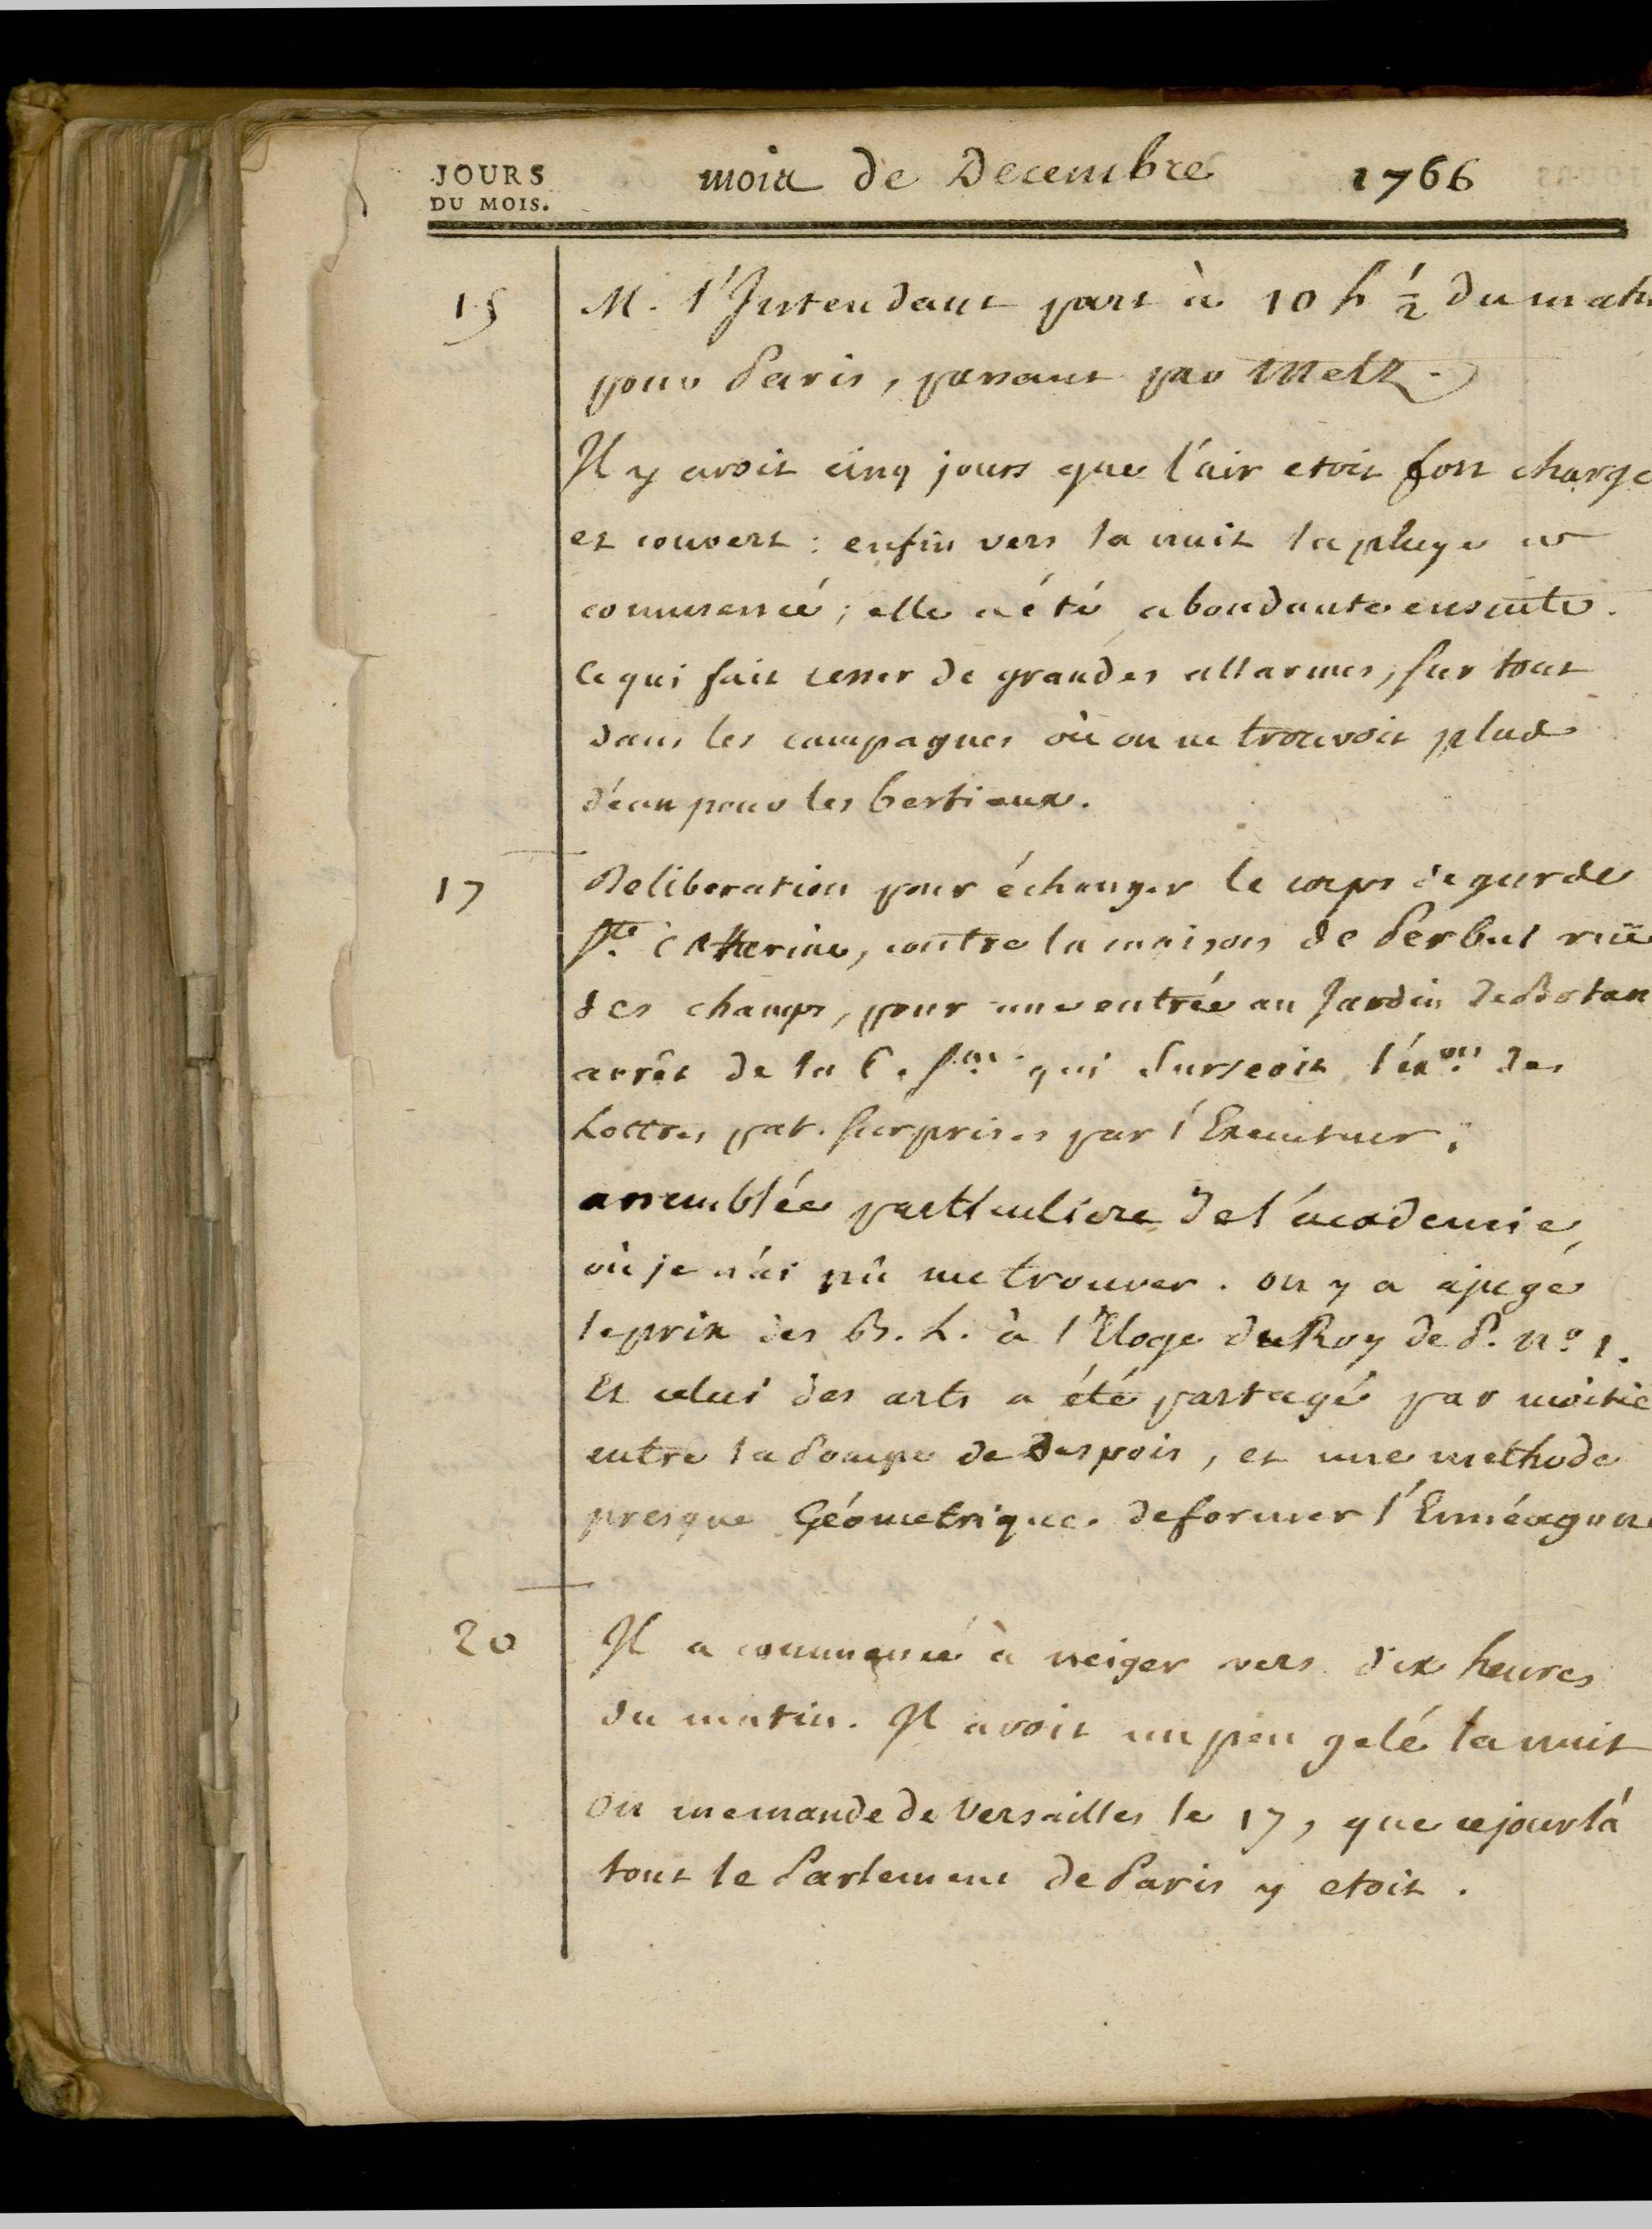 JOURS
DU MOIS.
mois de Decembre 1766
15 M. l'Intendant part à 10 h ½ du matin
pour Paris, passant par Metz.
Il y avoit cinq jours que l'air etoit fort chargé
et couvert : enfin vers la nuit la pluye a
commencé ; elle a été abondante ensuite.
Ce qui fait cesser de grandes allarmes, sur tout
dans les campagnes où on ne trouvoit plus
d'eau pour les bestiaux.
17 Deliberation pour échanger le corps de garde
Ste Catherine, contre la maison de Perbal ruë
des champs, pour une entrée au Jardin de Botan
arrêt de la C. Sne qui surseoit l'éxon des
Lettres pat. surprises par l'Executeur.
assemblée particuliere de l'academie,
où je n'ai pû me trouver. on y a ajugé
le prix des B. L. à l'Eloge du Roy de P. no 1.
Et celui des arts a été partagé par moitié
entre la Pompe de Despois, et une methode
presque Géometrique de former l'Ennéagone
20 Il a commencé à neiger vers dix heures
du matin. Il avoit un peu gelé la nuit
On me mande de Versailles le 17, que ce jour là
tout le Parlement de Paris y etoit.